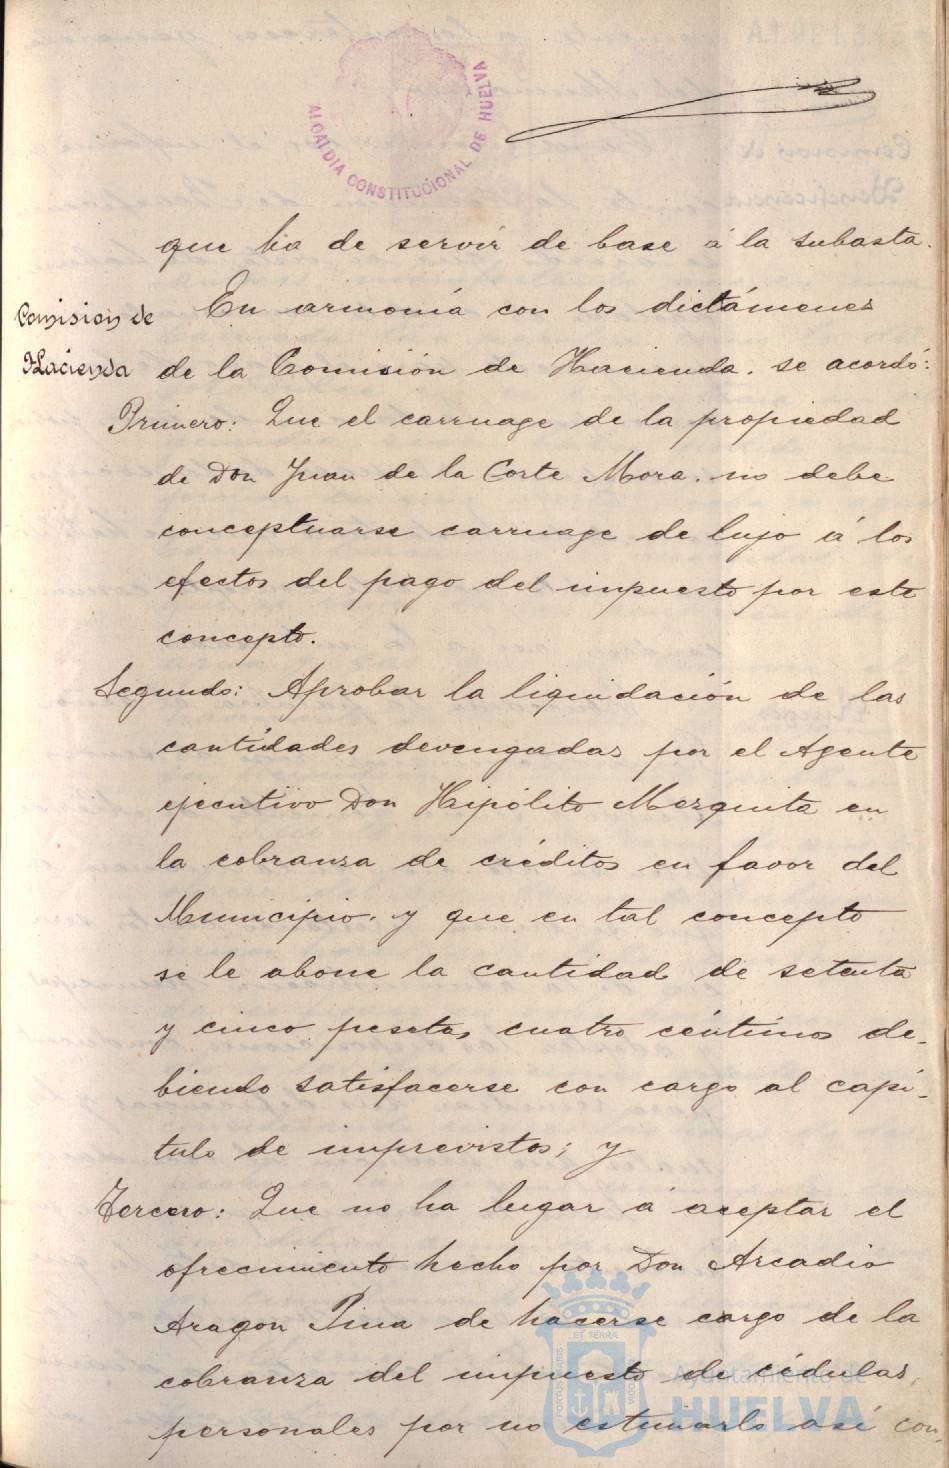 ALCALDIA CONSTITUCIONAL DE HUELVA
que ha de servir de base á la subasta.
Comision de
Hacienda
En armonía con los dictámenes
de la Comisión de Hacienda. se acordó:
Primero: Que el carruage de la propiedad
de Don Juan de la Corte Mora. no debe
conceptuarse carruage de lujo á los
efectos del pago del impuesto por este
concepto.
Segundo: Aprobar la liquidación de las
cantidades devengadas por el Agente
ejecutivo Don Hipólito Mezquita en
la cobranza de créditos en favor del
Municipio. y que en tal concepto
se le abone la cantidad de setenta
y cinco pesetas cuatro céntimos de-
biendo satisfacerse con cargo al capí-
tulo de imprevistos; y
Tercero: Que no ha lugar á aceptar el
ofrecimiento hecho por Don Arcadio
Aragon Pina de hacerse cargo de la
cobranza del impuesto de cédulas
personales por no estimarlo así con-
ET TERRÆ
Ayuntamiento de
HUELVA